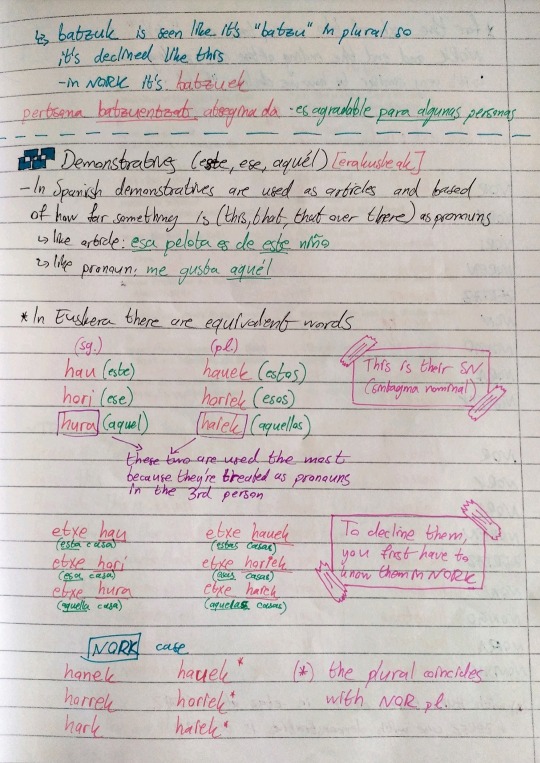 ↳ batzuk is seen like it's "batzu" in plural so
it's declined like this
- in NORK it's batzuek
pertsona batzuentzat atsegina da - es agradable para algunas personas
Demonstratives (este, ese, aquél) [erakusleak]
- In Spanish demonstratives are used as articles and based
of how far something is (this, that, that over there) as pronouns
↳ like article: esa pelota es de este niño
↳ like pronoun: me gusta aquél
* In Euskera there are equivalent words
(sg.) (pl.)
hau (este) hauek (estos)
hori (ese) horiek (esos)
hura (aquel) haiek (aquellos)
This is their SN
(sintagma nominal)
these two are used the most
because they're treated as pronouns
in the 3rd person
etxe hau etxe hauek
(esta casa) (estas casas)
etxe hori etxe horiek
(esa casa) (esas casas)
etxe hura etxe haiek
(aquella casa) (aquellas casas)
To decline them,
you first have to
know them in NORK
NORK case
honek hauek*
horrek horiek*
hark haiek*
(*) the plural coincides
with NOR pl.